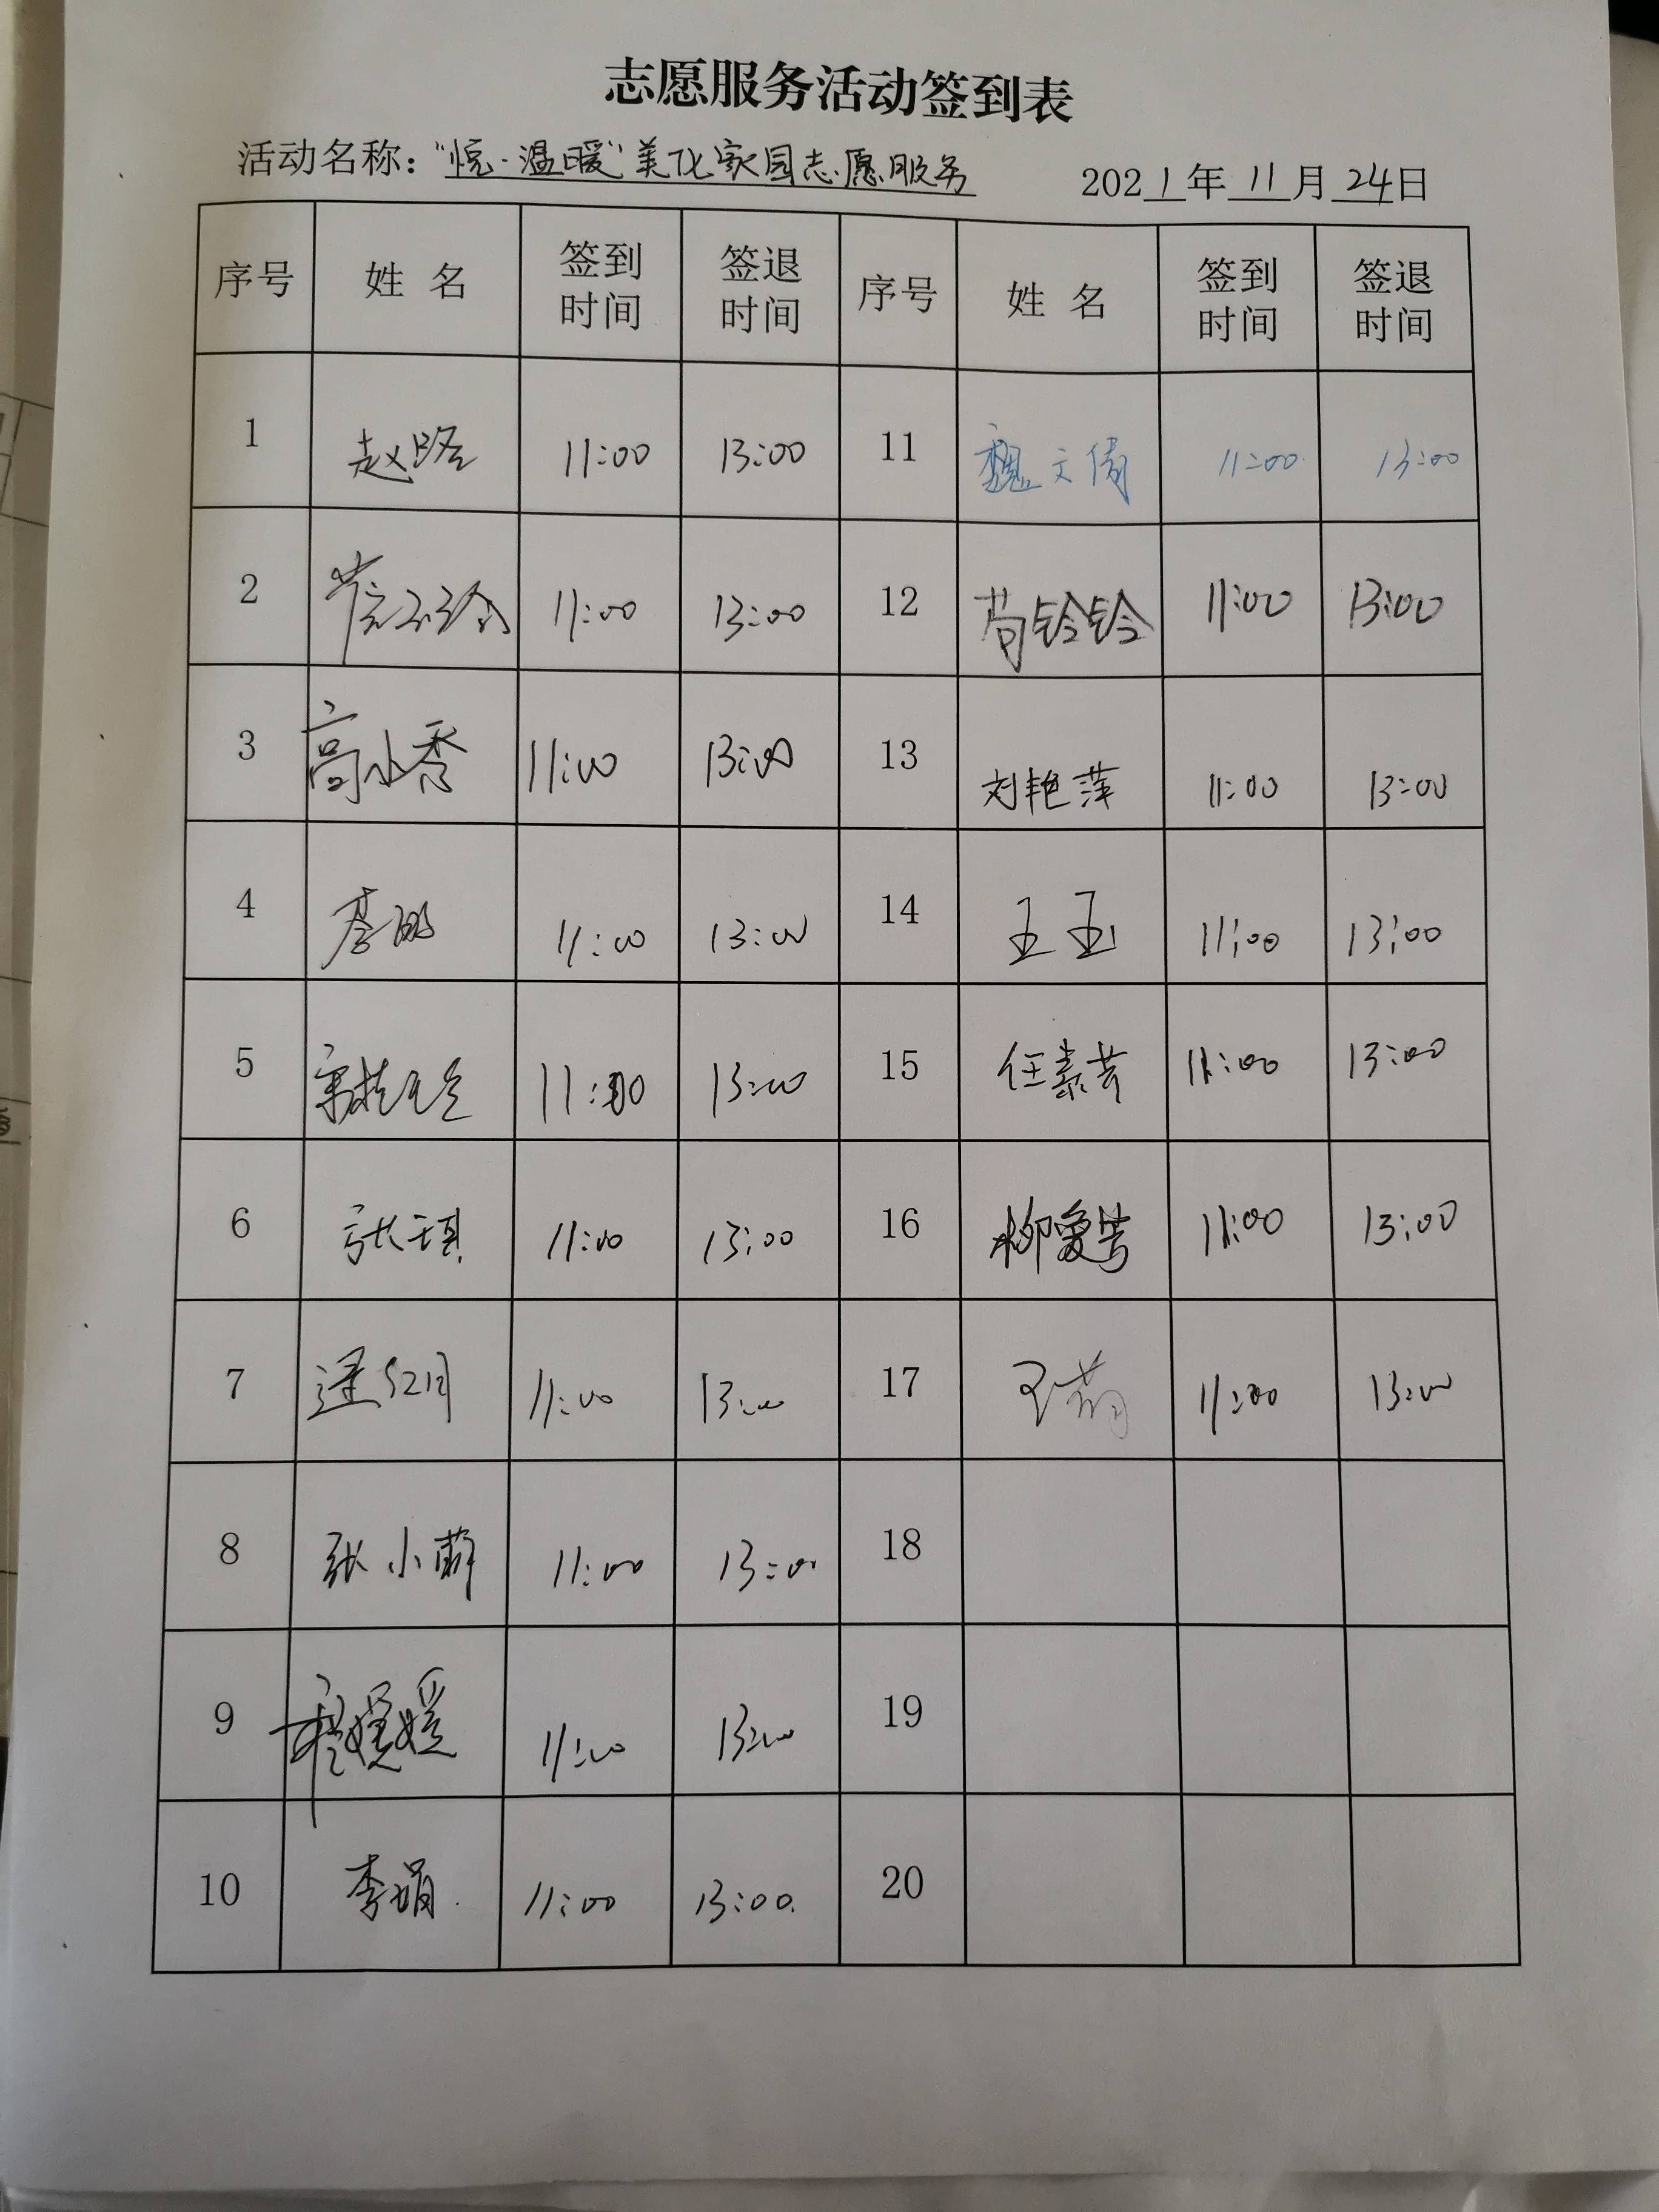 志愿服务活动签到表
活动名称："悦·温暖"美化家园志愿服务 2021年11月24日
序号 姓名 签到时间 签退时间 序号 姓名 签到时间 签退时间
1 赵路 11:00 13:00 11 魏文倩 11:00 13:00
2 11:00 13:00 12 苟铃铃 11:00 13:00
3 高小香 11:00 13:00 13 刘艳萍 11:00 13:00
4 11:00 13:00 14 王玉 11:00 13:00
5 11:00 13:00 15 任素芳 11:00 13:00
6 张琪 11:00 13:00 16 柳爱芳 11:00 13:00
7 11:00 13:00 17 11:00 13:00
8 张小萍 11:00 13:00 18
9 程媛媛 11:00 13:00 19
10 李娟 11:00 13:00 20